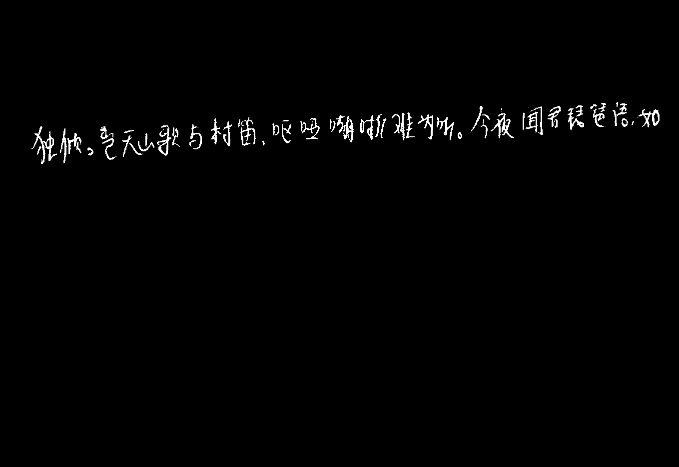 独倾。岂无山歌与村笛,呕哑嘲哳难为听。今夜闻君琵琶语,如